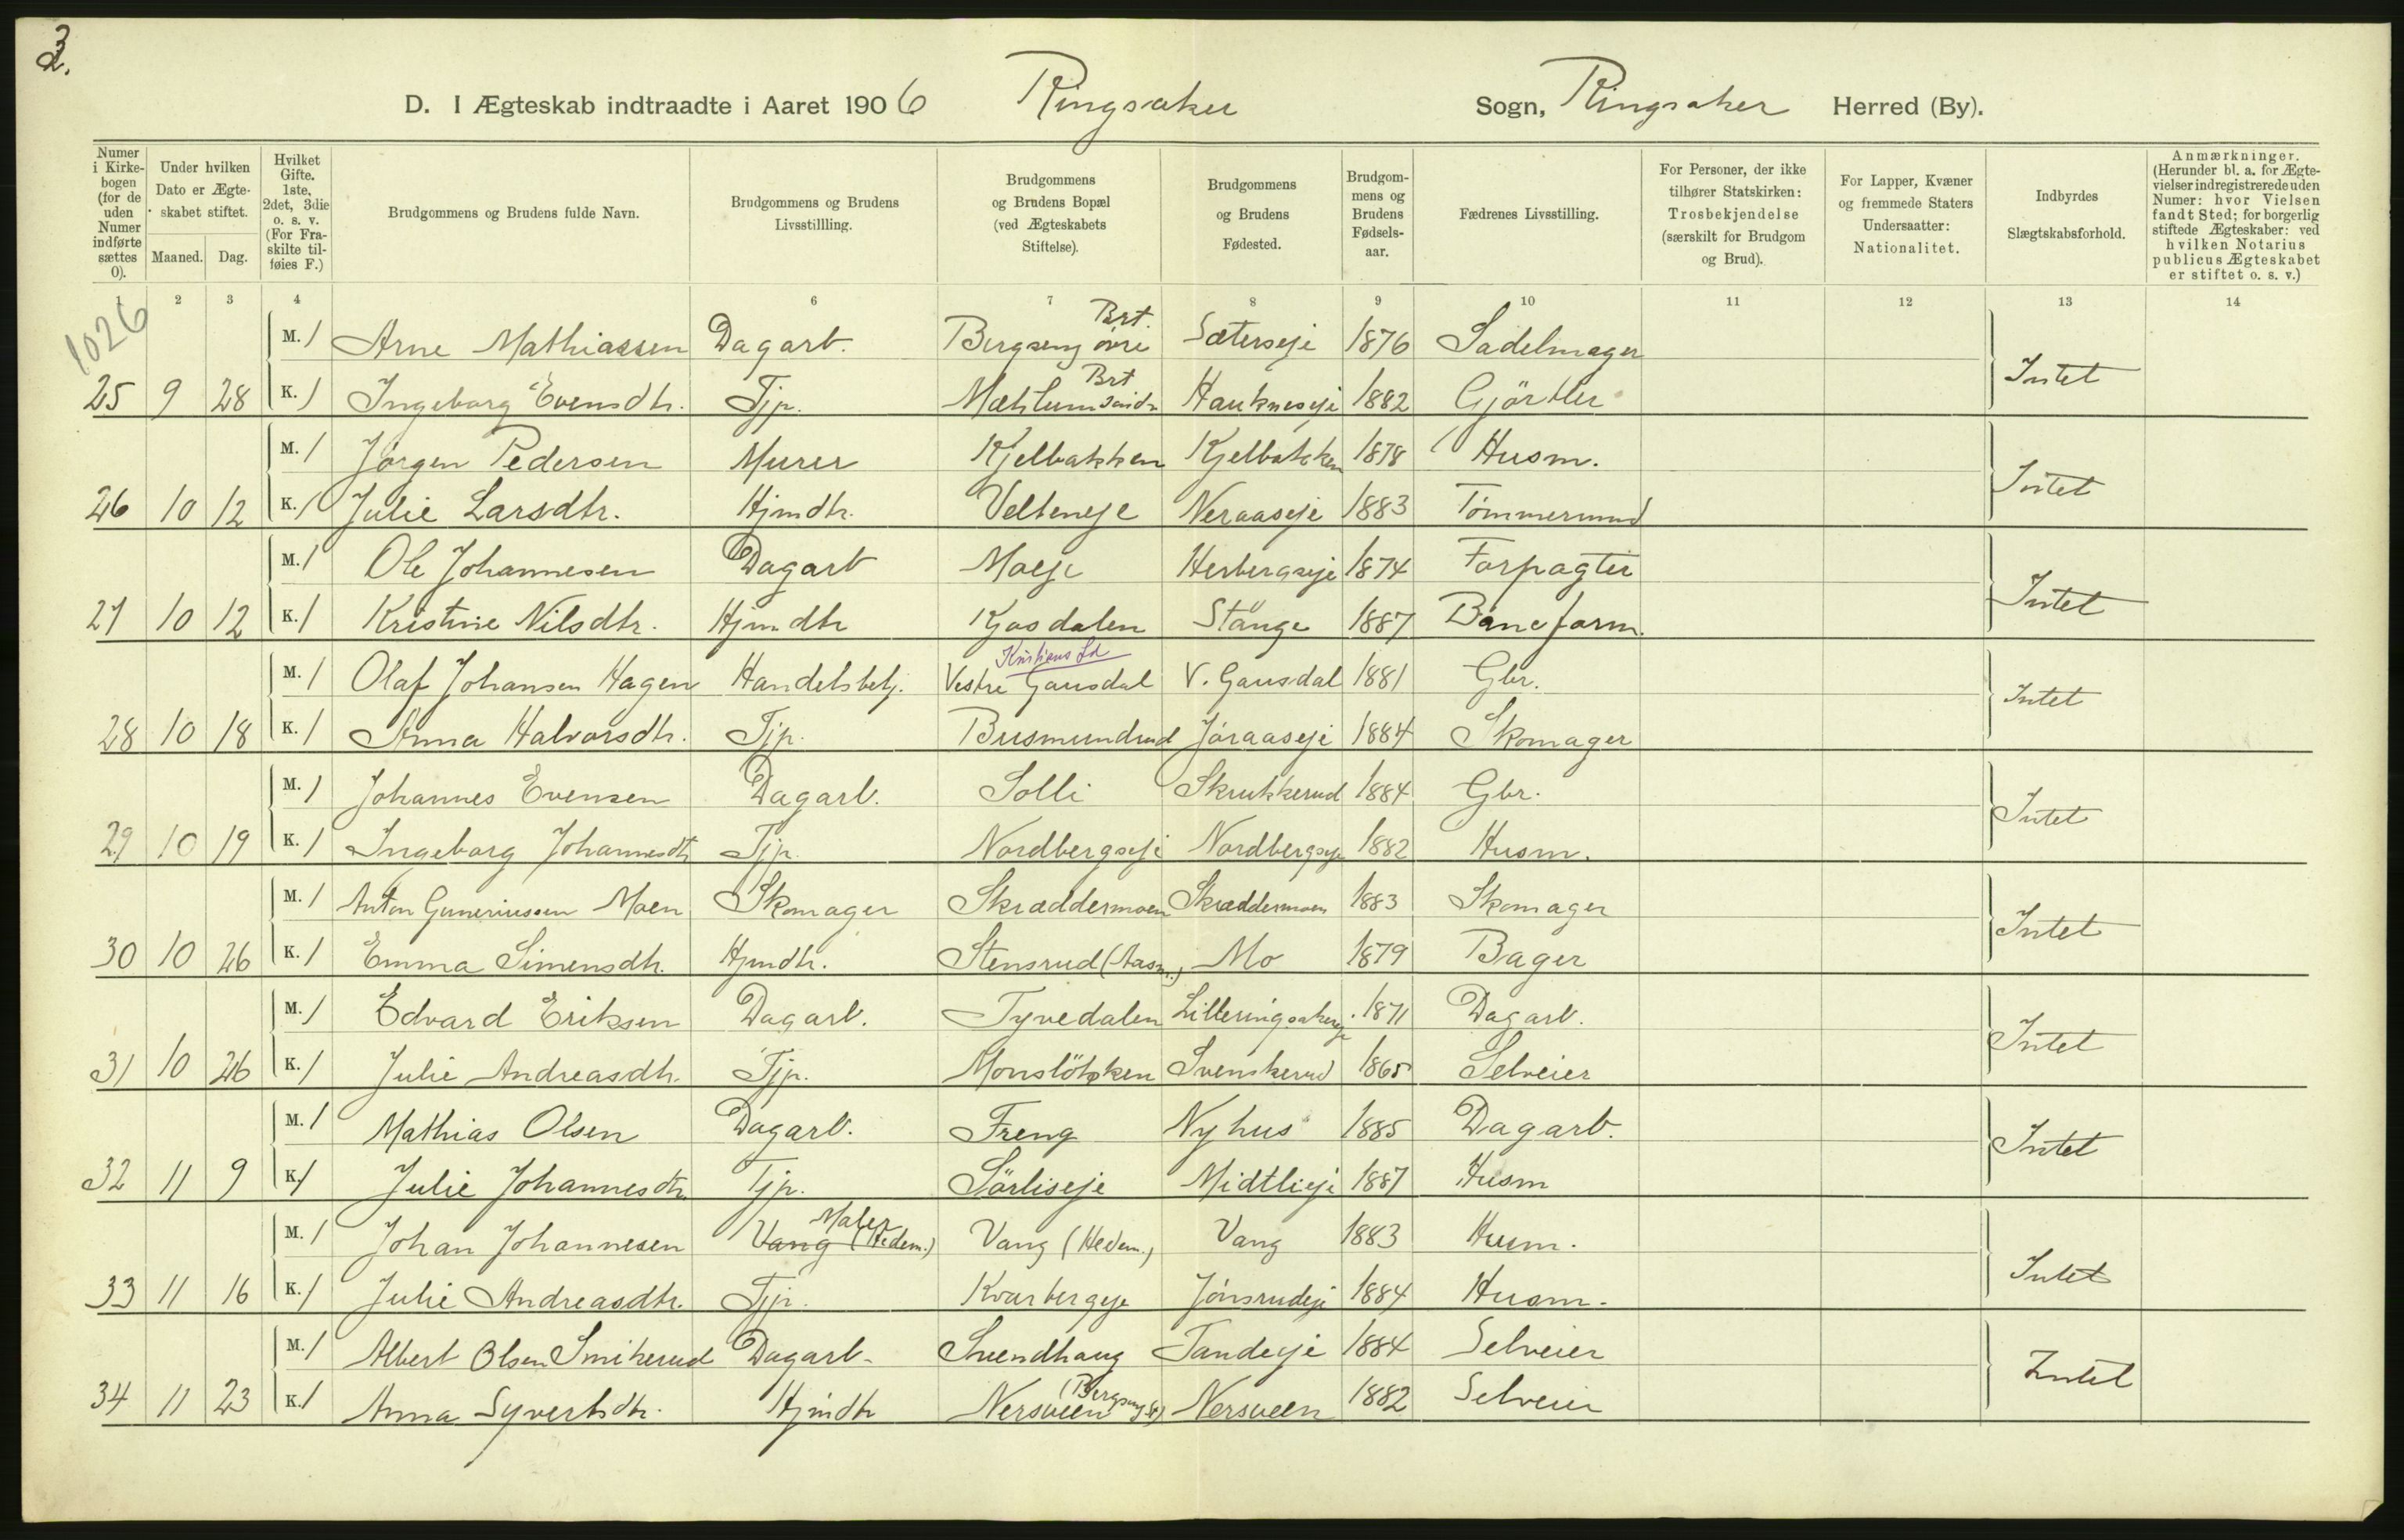 3.
D. I Ægteskab indtraadte i Aaret 1906 Ringsaker Sogn, Ringsaker Herred (By).
Numer i Kirkebogen (for de uden Numer indførte sættes 0).
Under hvilken Dato er Ægteskabet stiftet.
Maaned. Dag.
Hvilket Gifte. 1ste, 2det, 3die o. s. v. (For Fraskilte tilføies F.)
Brudgommens og Brudens fulde Navn.
Brudgommens og Brudens Livsstillling.
Brudgommens og Brudens Bopæl (ved Ægteskabets Stiftelse).
Brudgommens og Brudens Fødested.
Brudgommens og Brudens Fødselsaar.
Fædrenes Livsstilling.
For Personer, der ikke tilhører Statskirken: Trosbekjendelse (særskilt for Brudgom og Brud).
For Lapper, Kvæner og fremmede Staters Undersaatter: Nationalitet.
Indbyrdes Slægtskabsforhold.
Anmærkninger. (Herunder bl. a. for Ægtevielser indregistrerede uden Numer: hvor Vielsen fandt Sted; for borgerlig stiftede Ægteskaber: ved hvilken Notarius publicus Ægteskabet er stiftet o. s. v.)
1 2 3 4 6 7 8 9 10 11 12 13 14
1026
M. 1 Arne Mathiassen Dagarb. Bergseng övre Brt. Sæterseje 1876 Sadelmager
25 9 28 K. 1 Ingeborg Evensdtr. Tjp. Mæhlum Brt Haukneseje 1882 Gjörtler Intet
M. 1 Jörgen Pedersen Murer Kjelbakken Kjelbakken 1878 Husm.
26 10 12 K. 1 Julie Larsdtr. Hjmdtr. Velteneje Neraaseje 1883 Tømmermand Intet
M. 1 Ole Johannesen Dagarb Moeje Herbergseje 1874 Forpagter
27 10 12 K. 1 Kristine Nilsdtr. Hjmdtr Kjosdalen Stange 1887 Baneform. Intet
Kristians
M. 1 Olaf Johansen Hagen Handelsbetj. Vestre Gausdal V. Gausdal 1881 Gbr.
28 10 18 K. 1 Anna Halvorsdtr. Tjp. Busmundrud Jøraaseje 1884 Skomager Intet
M. 1 Johannes Evensen Dagarb. Solli Skrukkerud 1884 Gbr.
29 10 19 K. 1 Ingeborg Johannesdtr Tjp. Nordbergseje Nordbergseje 1882 Husm. Intet
M. 1 Anton Guneriussen Moen Skomager Skræddermoen Skræddermoen 1883 Skomager
30 10 26 K. 1 Emma Simensdtr. Hjmdtr. Stensrud (Aasm.) Mo 1879 Bager Intet
M. 1 Edvard Eriksen Dagarb. Tyvedalen Lilleringsakereje 1871 Dagarb.
31 10 26 K. 1 Julie Andreasdtr. Tjp. Monslökken Svenskerud 1865 Selveier Intet
M. 1 Mathias Olsen Dagarb. Freng Nyhus 1885 Dagarb.
32 11 9 K. 1 Julie Johannesdtr. Tjp. Sörliseje Midtlieje 1887 Husm Intet
M. 1 Johan Johannesen Vang (Hedem.) Maler Vang (Hedem.) Vang 1883 Husm.
33 11 16 K. 1 Julie Andreasdtr. Tjp. Kvarbergeje Jönsrudeje 1884 Husm. Intet
M. 1 Albert Olsen Smikerud Dagarb. Svendhaug Tandeeje 1884 Selveier
34 11 23 K. 1 Anna Syvertsdtr. Hjmdtr Nersveen Nersveen 1882 Selveier Intet